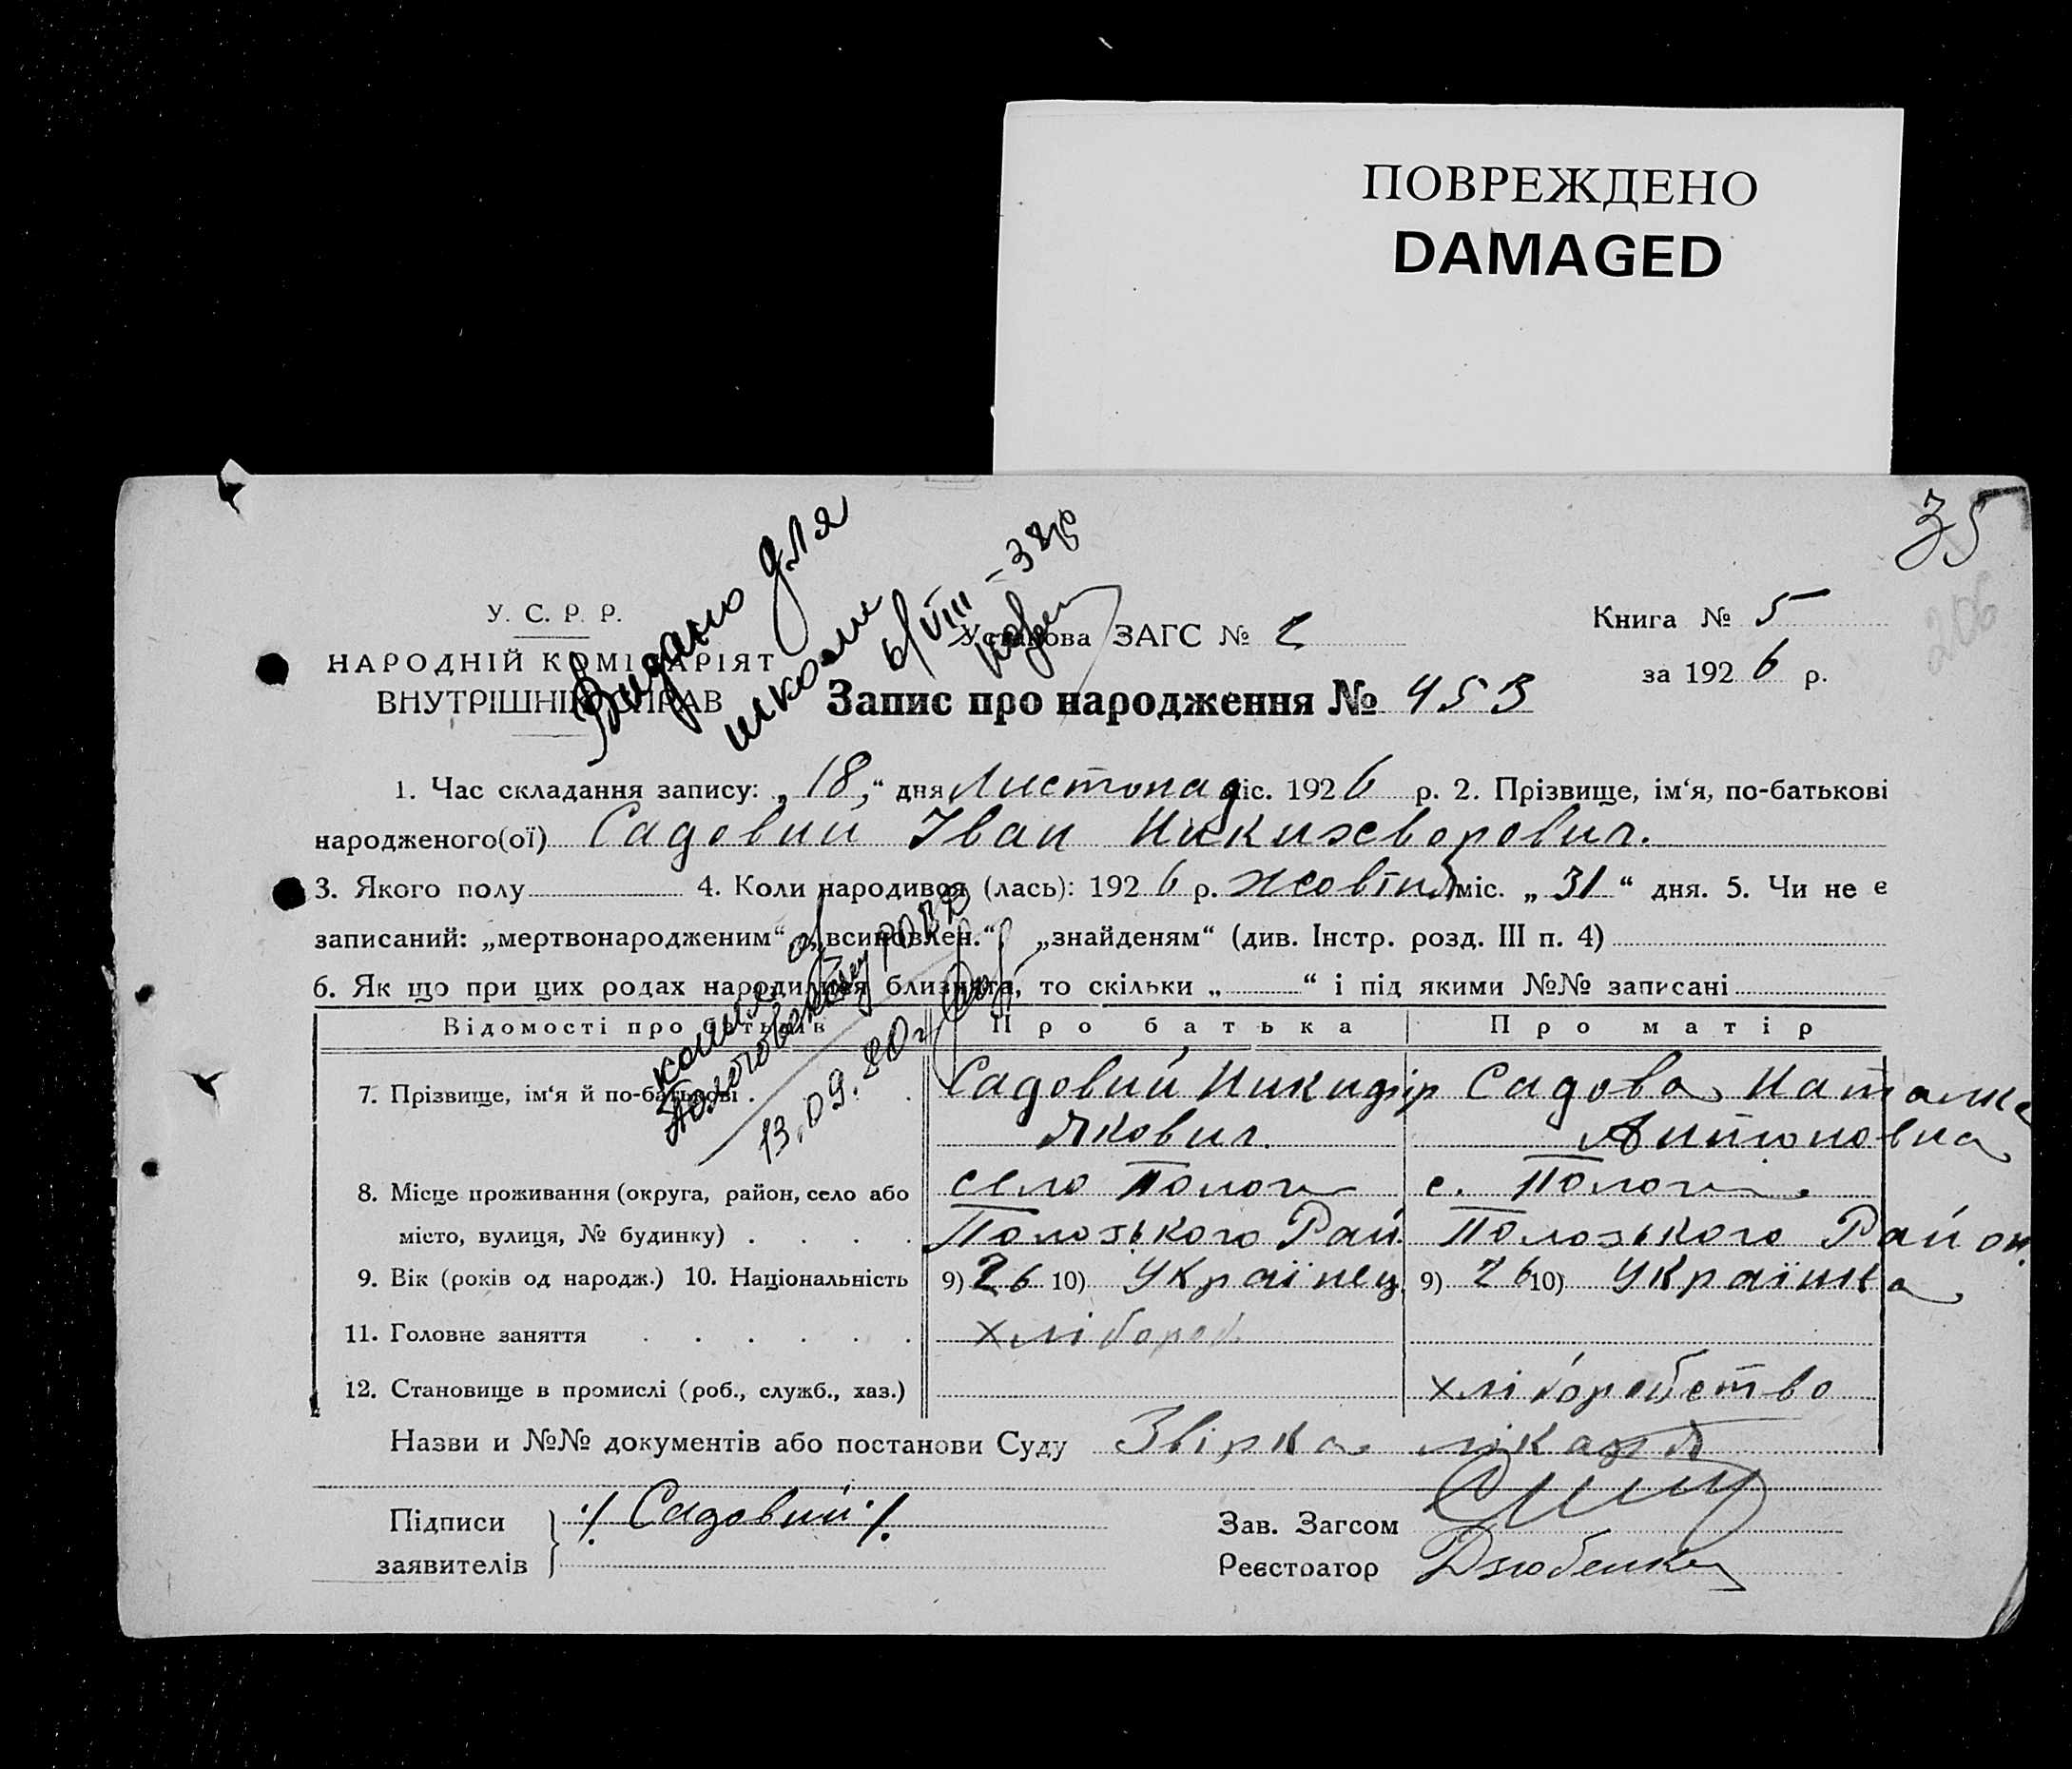 ПОВРЕЖДЕНО
DAMAGED
35
206
Видано для
школи
6/VIII - 38 р
У. С. Р. Р.
НАРОДНІЙ КОМІСАРІЯТ
ВНУТРІШНІХ СПРАВ
Установа ЗАГС № 2
Книга № 5
за 1926 р.
Запис про народження № 453
1. Час складання запису: „18“ дня Листопад міс. 1926 р. 2. Прізвище, ім‘я, по-батькові
народженого(ої) Садовий Іван Никихворович.
3. Якого полу 4. Коли народився (лась): 1926 р. жовтня міс. „31“ дня. 5. Чи не є
записаний: „мертвонародженим“ „всиновлен.“, „знайденям“ (див. Інстр. розд. III п. 4)
6. Як що при цих родах народилися близнята, то скільки „ “ і під якими №№ записані
копия
Пологовскому РОВД
13.09.80 г.
Відомості про батьків Про батька Про матір
7. Прізвище, ім‘я й по-батькові . . Садовий Никифір Садова Наталка
Якович. Антоновна
8. Місце проживання (округа, район, село або село Пологи с. Пологи.
місто, вулиця, № будинку) . . . . Полозького Рай. Полозького Район.
9. Вік (років од народж.) 10. Національність 9) 26 10) Українец 9) 26 10) Українка
11. Головне заняття . . . . . . хлібороб
12. Становище в промислі (роб., служб., хаз.) хліборобство
Назви и №№ документів або постанови Суду Звірка
Підписи ./. Садовий ./. Зав. Загсом
заявителів Реєстратор Дзюбенко